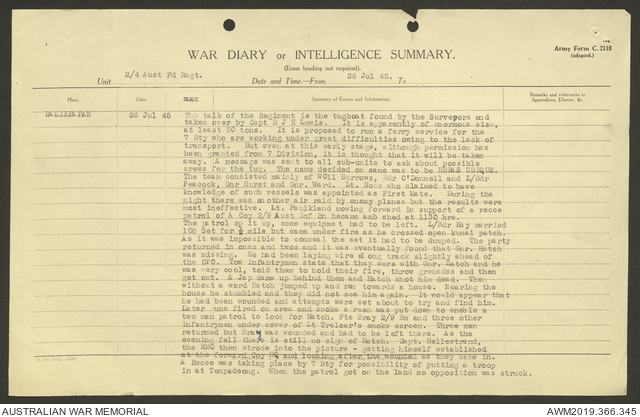 Army Form C. 2118
(adapted.)
WAR DIARY or INTELLIGENCE SUMMARY.
(Erase heading not required).
Unit 2/4 Aust Fd Regt. Date and Time.—From 26 Jul 45. To
Place. Date Summary of Events and Information. Remarks and references to Appendices, Diaries, &c.
BALIKPAPAN 26 Jul 45 The talk of the Regiment is the tugboat found by the Surveyors and
taken over by Capt B J H Lewis. It is apparently of enormous size,
at least 50 tons. It is proposed to run a ferry service for the
7 Bty who are working under great difficulties owing to the lack of
transport. But even at this early stage, although permission has
been granted from 7 Division, it is thought that it will be taken
away. A message was sent to all sub-units to ask about possible
crews for the tug. The name decided on same was to be HMAS UBIQUE.
The team consisted mainly of WOII Burrows, Bdr O'Donnell and L/Bdr
Peacock, Gnr Hurst and Gnr. Ward. Lt. Moss who claimed to have
knowledge of such vessels was appointed as First Mate. During the
night there was another air raid by enemy planes but the results were
most ineffective. Lt. Paulkland moving forward in support of a recce
patrol of A Coy 2/9 Aust Inf Bn became ambushed at 1130 hrs.
The patrol split up, some equipment had to be left. L/Bdr Hay carried
108 Set for ½ mile but came under fire as he crossed open kunai patch.
As it was impossible to conceal the set it had to be dumped. The party
returned in ones and twos and it was eventually found that Gnr. Hatch
was missing. He had been laying wire along track slightly ahead of
the CPO. Two infantrymen state that they were with Gnr. Hatch and he
was very cool, told them to hold their fire, throw grenades and then
got out. A Jap came up behind them and Hatch shot him dead. Then
without a word Hatch jumped up and ran towards a house. Nearing the
house he stumbled and they did not see him again. It would appear that
he had been wounded and attempts were set about to try and find him.
Later guns fired on area and smoke screen was put down to enable a
two man patrol to look for Hatch. Pte Bray 2/9 Bn and three other
infantrymen under cover of Lt Treloar's smoke screen. Three men
returned but Bray wounded and had to be left there. As the
evening fell there is still no sign of Hatch. Capt. Hellestrand,
the RMO then strode into the picture - getting himself established
at the forward Coy HQ and looking after the wounded as they came in.
A Recce was taking place by 7 Bty for possibility of putting a troop
in at Tempadeong. When the patrol got on the land no opposition was struck.
AUSTRALIAN WAR MEMORIAL AWM2019.366.345